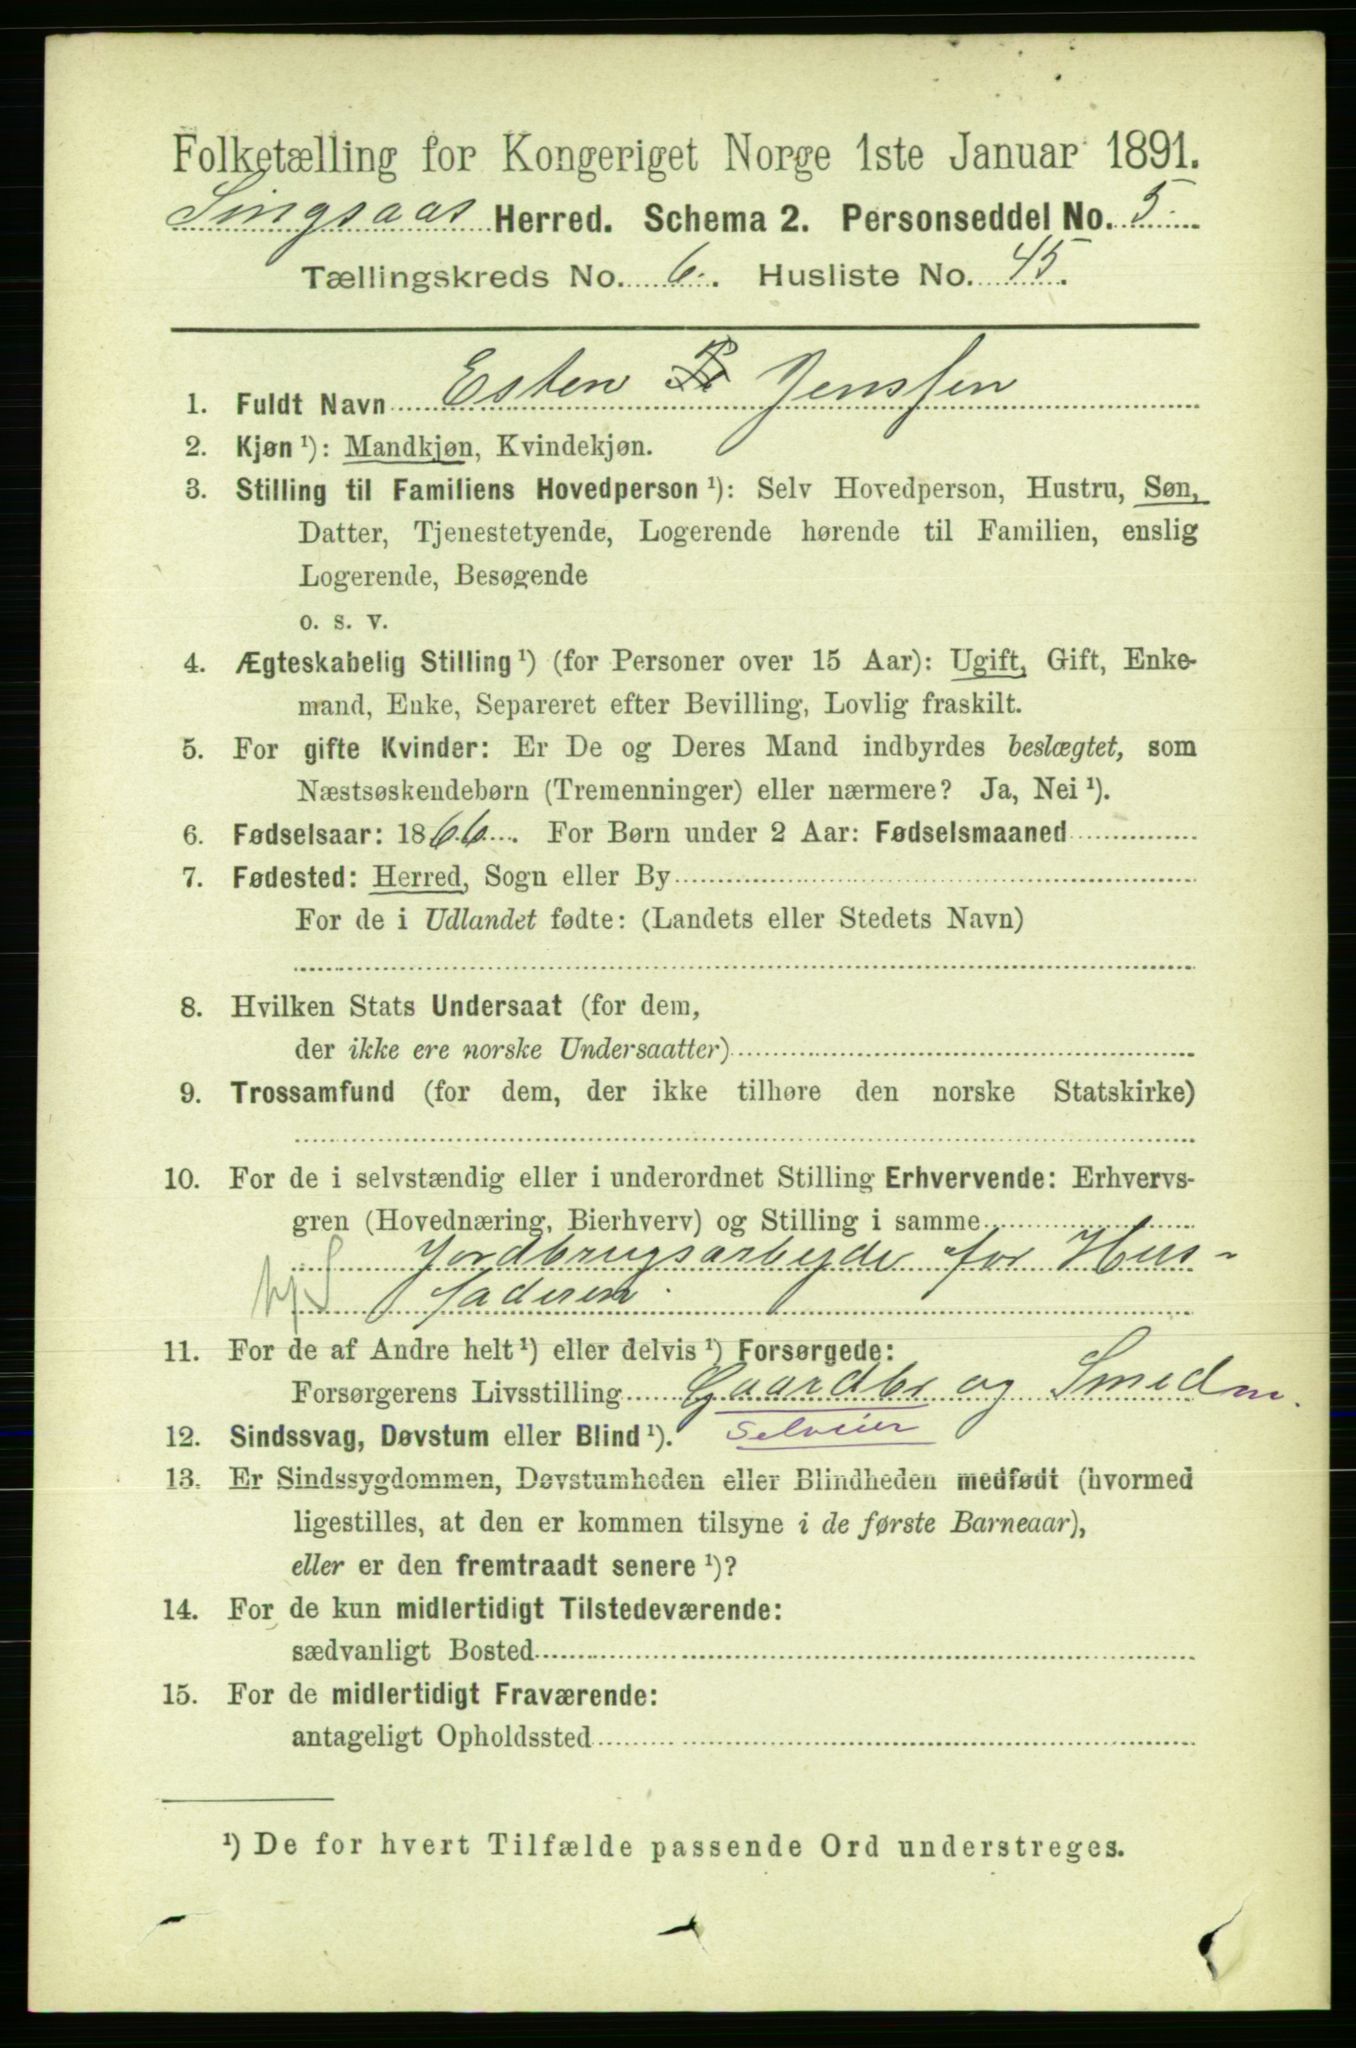 Folketælling for Kongeriget Norge 1ste Januar 1891.
Singsaas Herred. Schema 2. Personseddel No. 5.
Tællingskreds No. 6. Husliste No. 45.
1. Fuldt Navn Esten Jenssen
2. Kjøn ¹): Mandkjøn, Kvindekjøn.
3. Stilling til Familiens Hovedperson ¹): Selv Hovedperson, Hustru, Søn,
Datter, Tjenestetyende, Logerende hørende til Familien, enslig
Logerende, Besøgende
o. s. v.
4. Ægteskabelig Stilling ¹) (for Personer over 15 Aar): Ugift, Gift, Enke-
mand, Enke, Separeret efter Bevilling, Lovlig fraskilt.
5. For gifte Kvinder: Er De og Deres Mand indbyrdes beslægtet, som
Næstsøskendebørn (Tremenninger) eller nærmere? Ja, Nei ¹).
6. Fødselsaar: 1866. For Børn under 2 Aar: Fødselsmaaned
7. Fødested: Herred, Sogn eller By
For de i Udlandet fødte: (Landets eller Stedets Navn)
8. Hvilken Stats Undersaat (for dem,
der ikke ere norske Undersaatter)
9. Trossamfund (for dem, der ikke tilhøre den norske Statskirke)
10. For de i selvstændig eller i underordnet Stilling Erhvervende: Erhvervs-
gren (Hovednæring, Bierhverv) og Stilling i samme
Jordbrugsarbeyde for Hus-
faderen.
11. For de af Andre helt ¹) eller delvis ¹) Forsørgede:
Forsørgerens Livsstilling Gaardbr og Smed
Selveier
12. Sindssvag, Døvstum eller Blind ¹).
13. Er Sindssygdommen, Døvstumheden eller Blindheden medfødt (hvormed
ligestilles, at den er kommen tilsyne i de første Barneaar),
eller er den fremtraadt senere ¹)?
14. For de kun midlertidigt Tilstedeværende:
sædvanligt Bosted
15. For de midlertidigt Fraværende:
antageligt Opholdssted
¹) De for hvert Tilfælde passende Ord understreges.